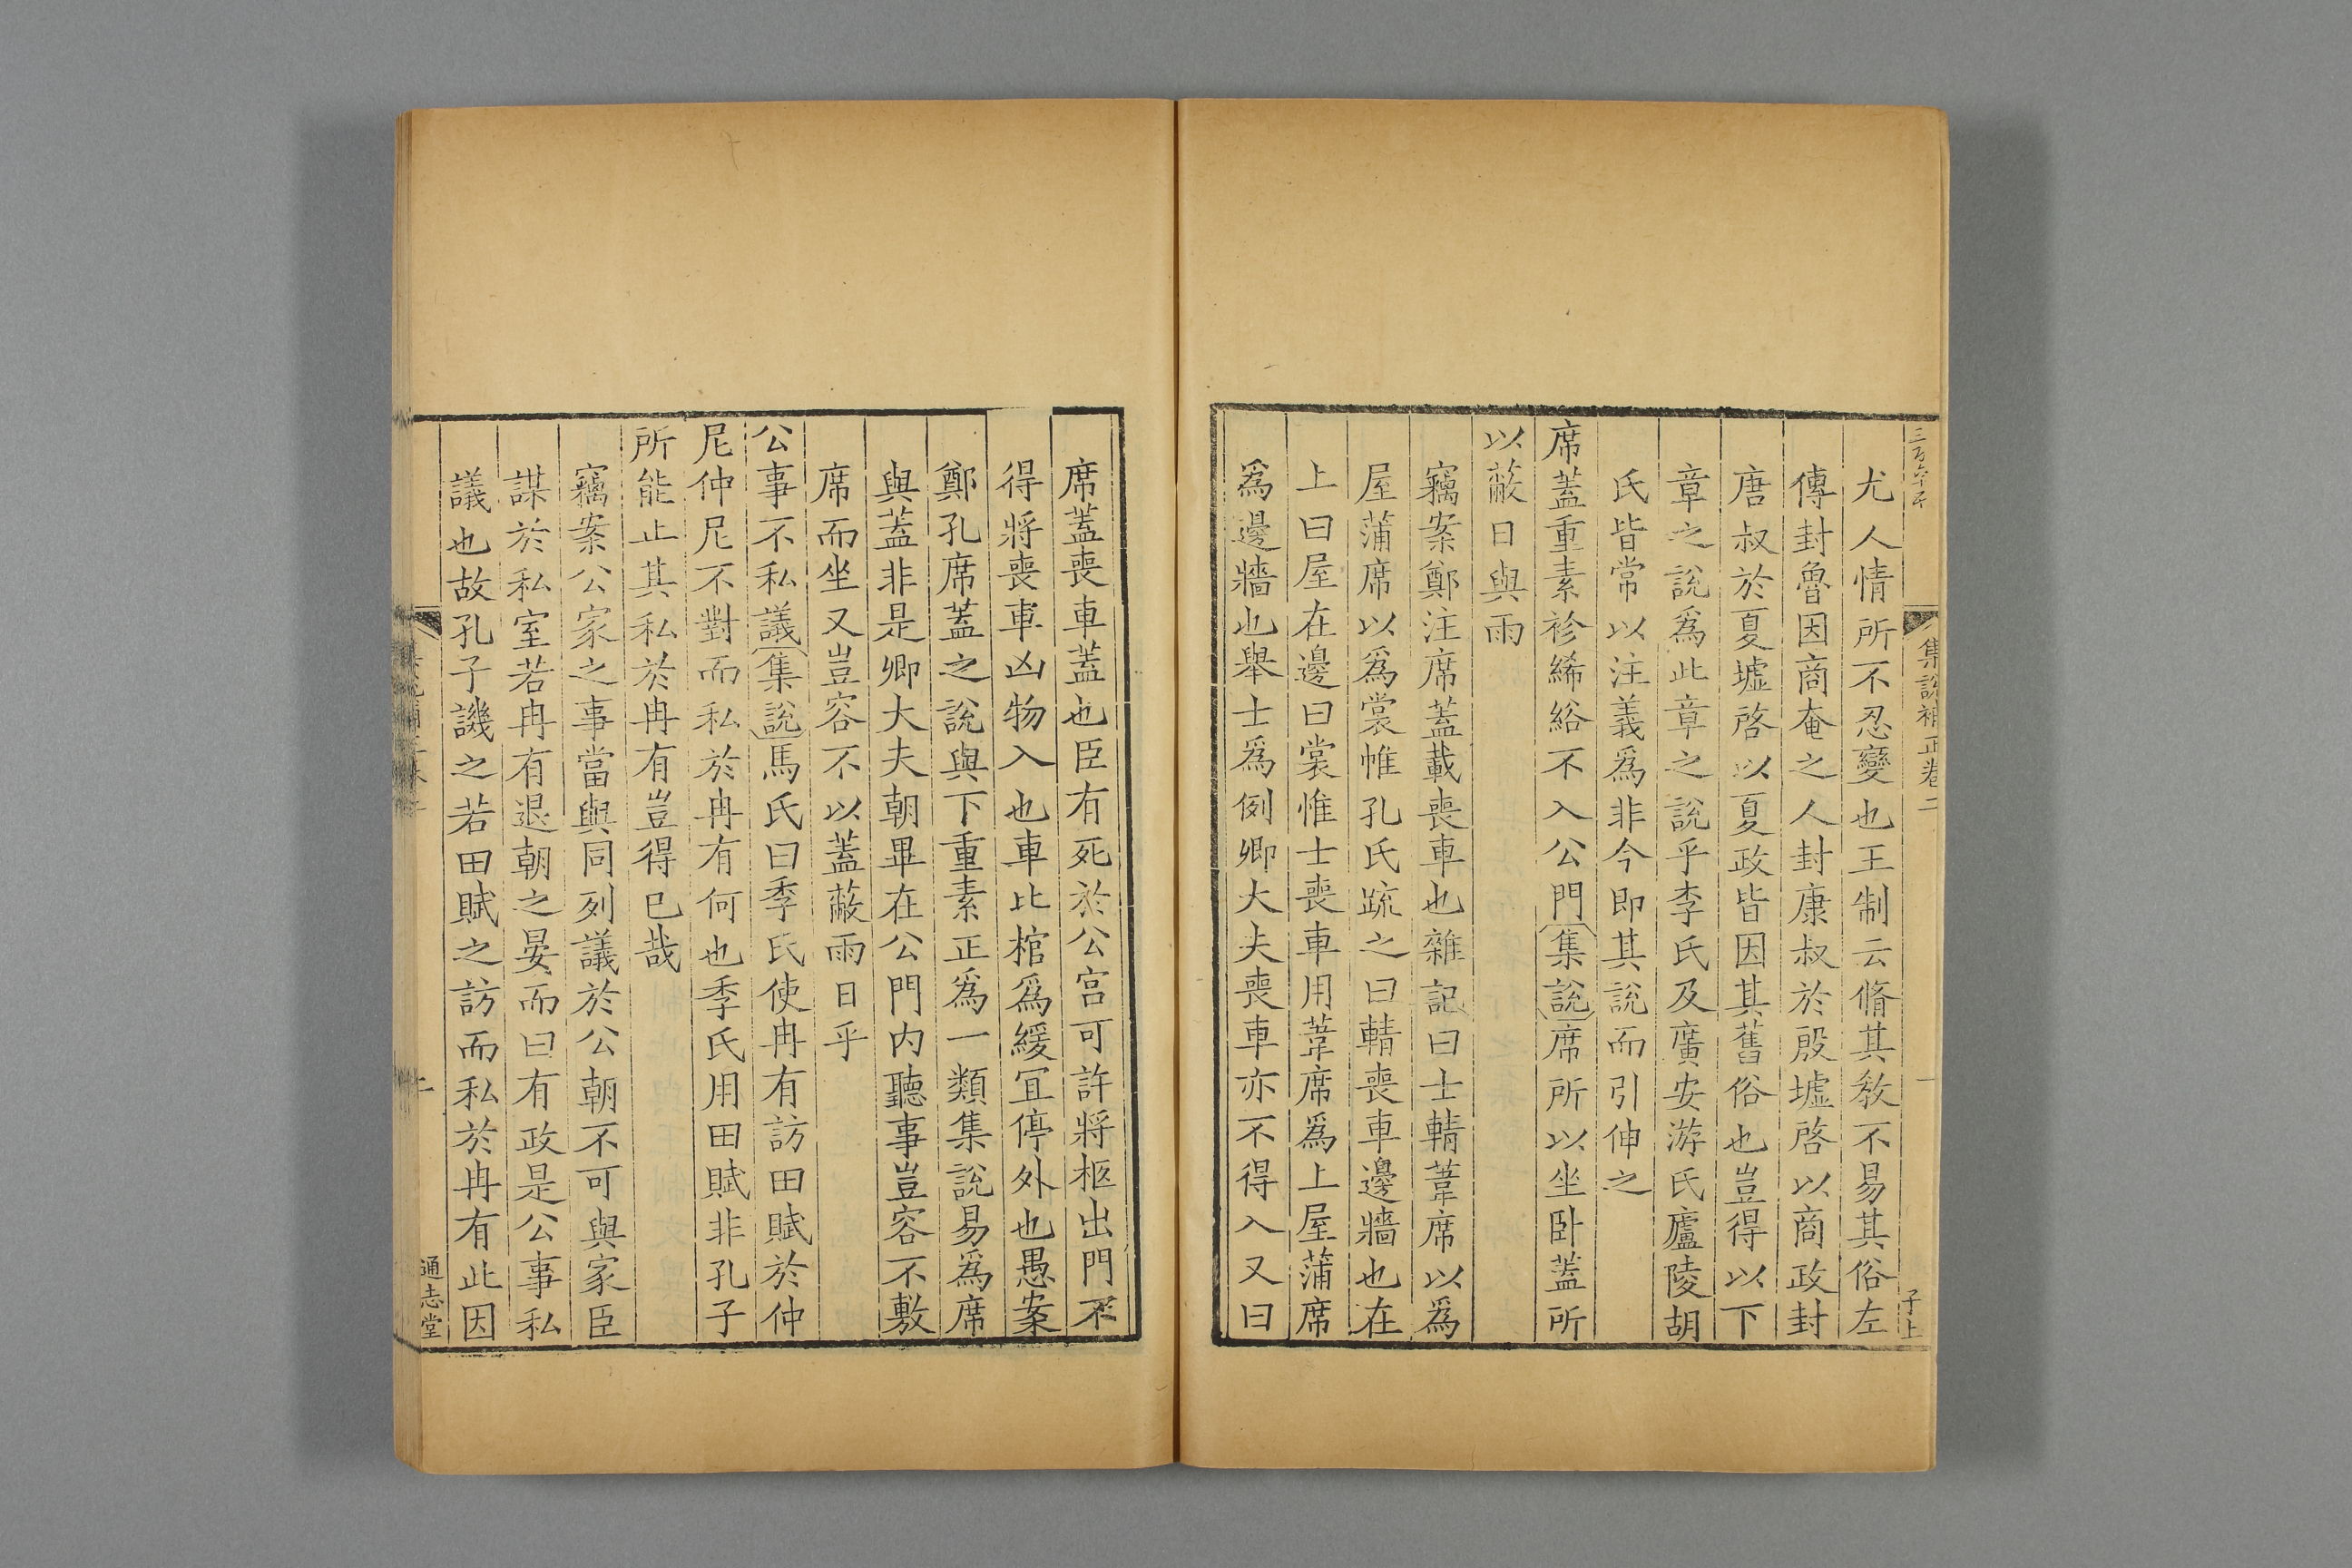 集說補正卷二
子上
尤人情所不忍變也王制云脩其教不易其俗左
傳封魯因商奄之人封康叔於殷墟啓以商政封
唐叔於夏墟啓以夏政皆因其舊俗也豈得以下
章之說爲此章之說乎李氏及廣安游氏廬陵胡
氏皆常以注義爲非今即其說而引伸之
席蓋重素袗絺綌不入公門集說席所以坐卧蓋所
以蔽日與雨
竊案鄭注席蓋載喪車也雜記曰士輤葦席以爲
屋蒲席以爲裳帷孔氏疏之曰輤喪車邊牆也在
上曰屋在邊曰裳惟士喪車用葦席爲上屋蒲席
爲邊牆也舉士爲例卿大夫喪車亦不得入又曰
席蓋喪車蓋也臣有死於公宮可許將柩出門不
得將喪車凶物入也車比棺爲緩宜停外也愚案
鄭孔席蓋之說與下重素正爲一類集說易爲席
與蓋非是卿大夫朝畢在公門内聽事豈容不敷
席而坐又豈容不以蓋蔽雨日乎
公事不私議集說馬氏曰季氏使冉有訪田賦於仲
尼仲尼不對而私於冉有何也季氏用田賦非孔子
所能止其私於冉有豈得已哉
竊案公家之事當與同列議於公朝不可與家臣
謀於私室若冉有退朝之晏而曰有政是公事私
議也故孔子譏之若田賦之訪而私於冉有此因
通志堂